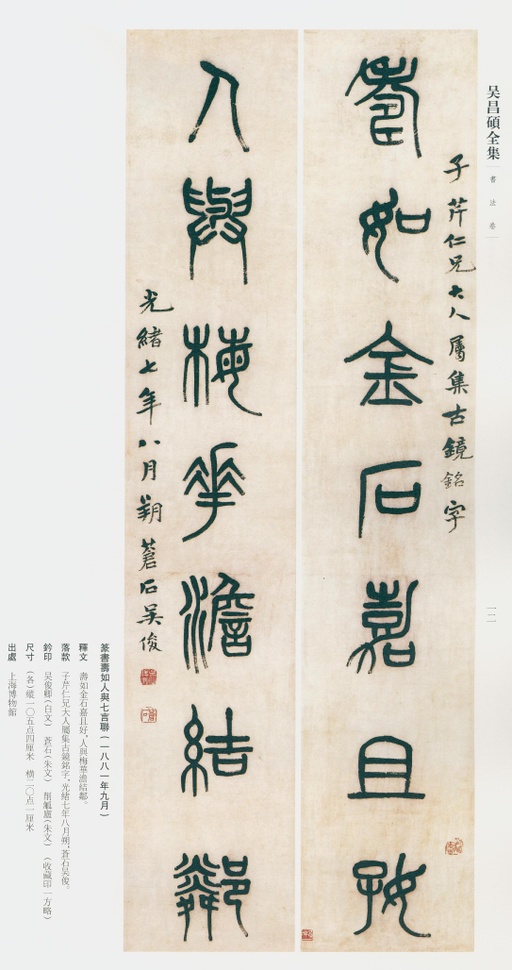 吴昌碩全集
書法卷
一二
子芹仁兄大人屬集古鏡銘字
壽如金石嘉且好
人與梅華澹結鄰
光緒七年八月朔蒼石吴俊
篆書壽如人與七言聯（一八八一年九月）
釋文 壽如金石嘉且好，人與梅華澹結鄰。
落款 子芹仁兄大人屬集古鏡銘字，光緒七年八月朔，蒼石吴俊。
鈐印 吴俊卿（白文） 蒼石（朱文） 削觚廬（朱文） （收藏印一方略）
尺寸 （各）縱一〇五点四厘米 橫二〇点一厘米
出處 上海博物館